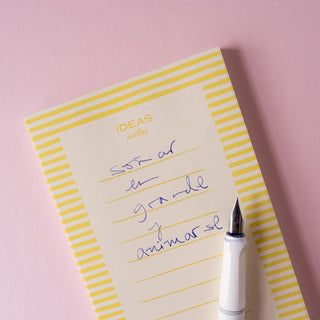 IDEAS
soñar
en
grande
y
animarse